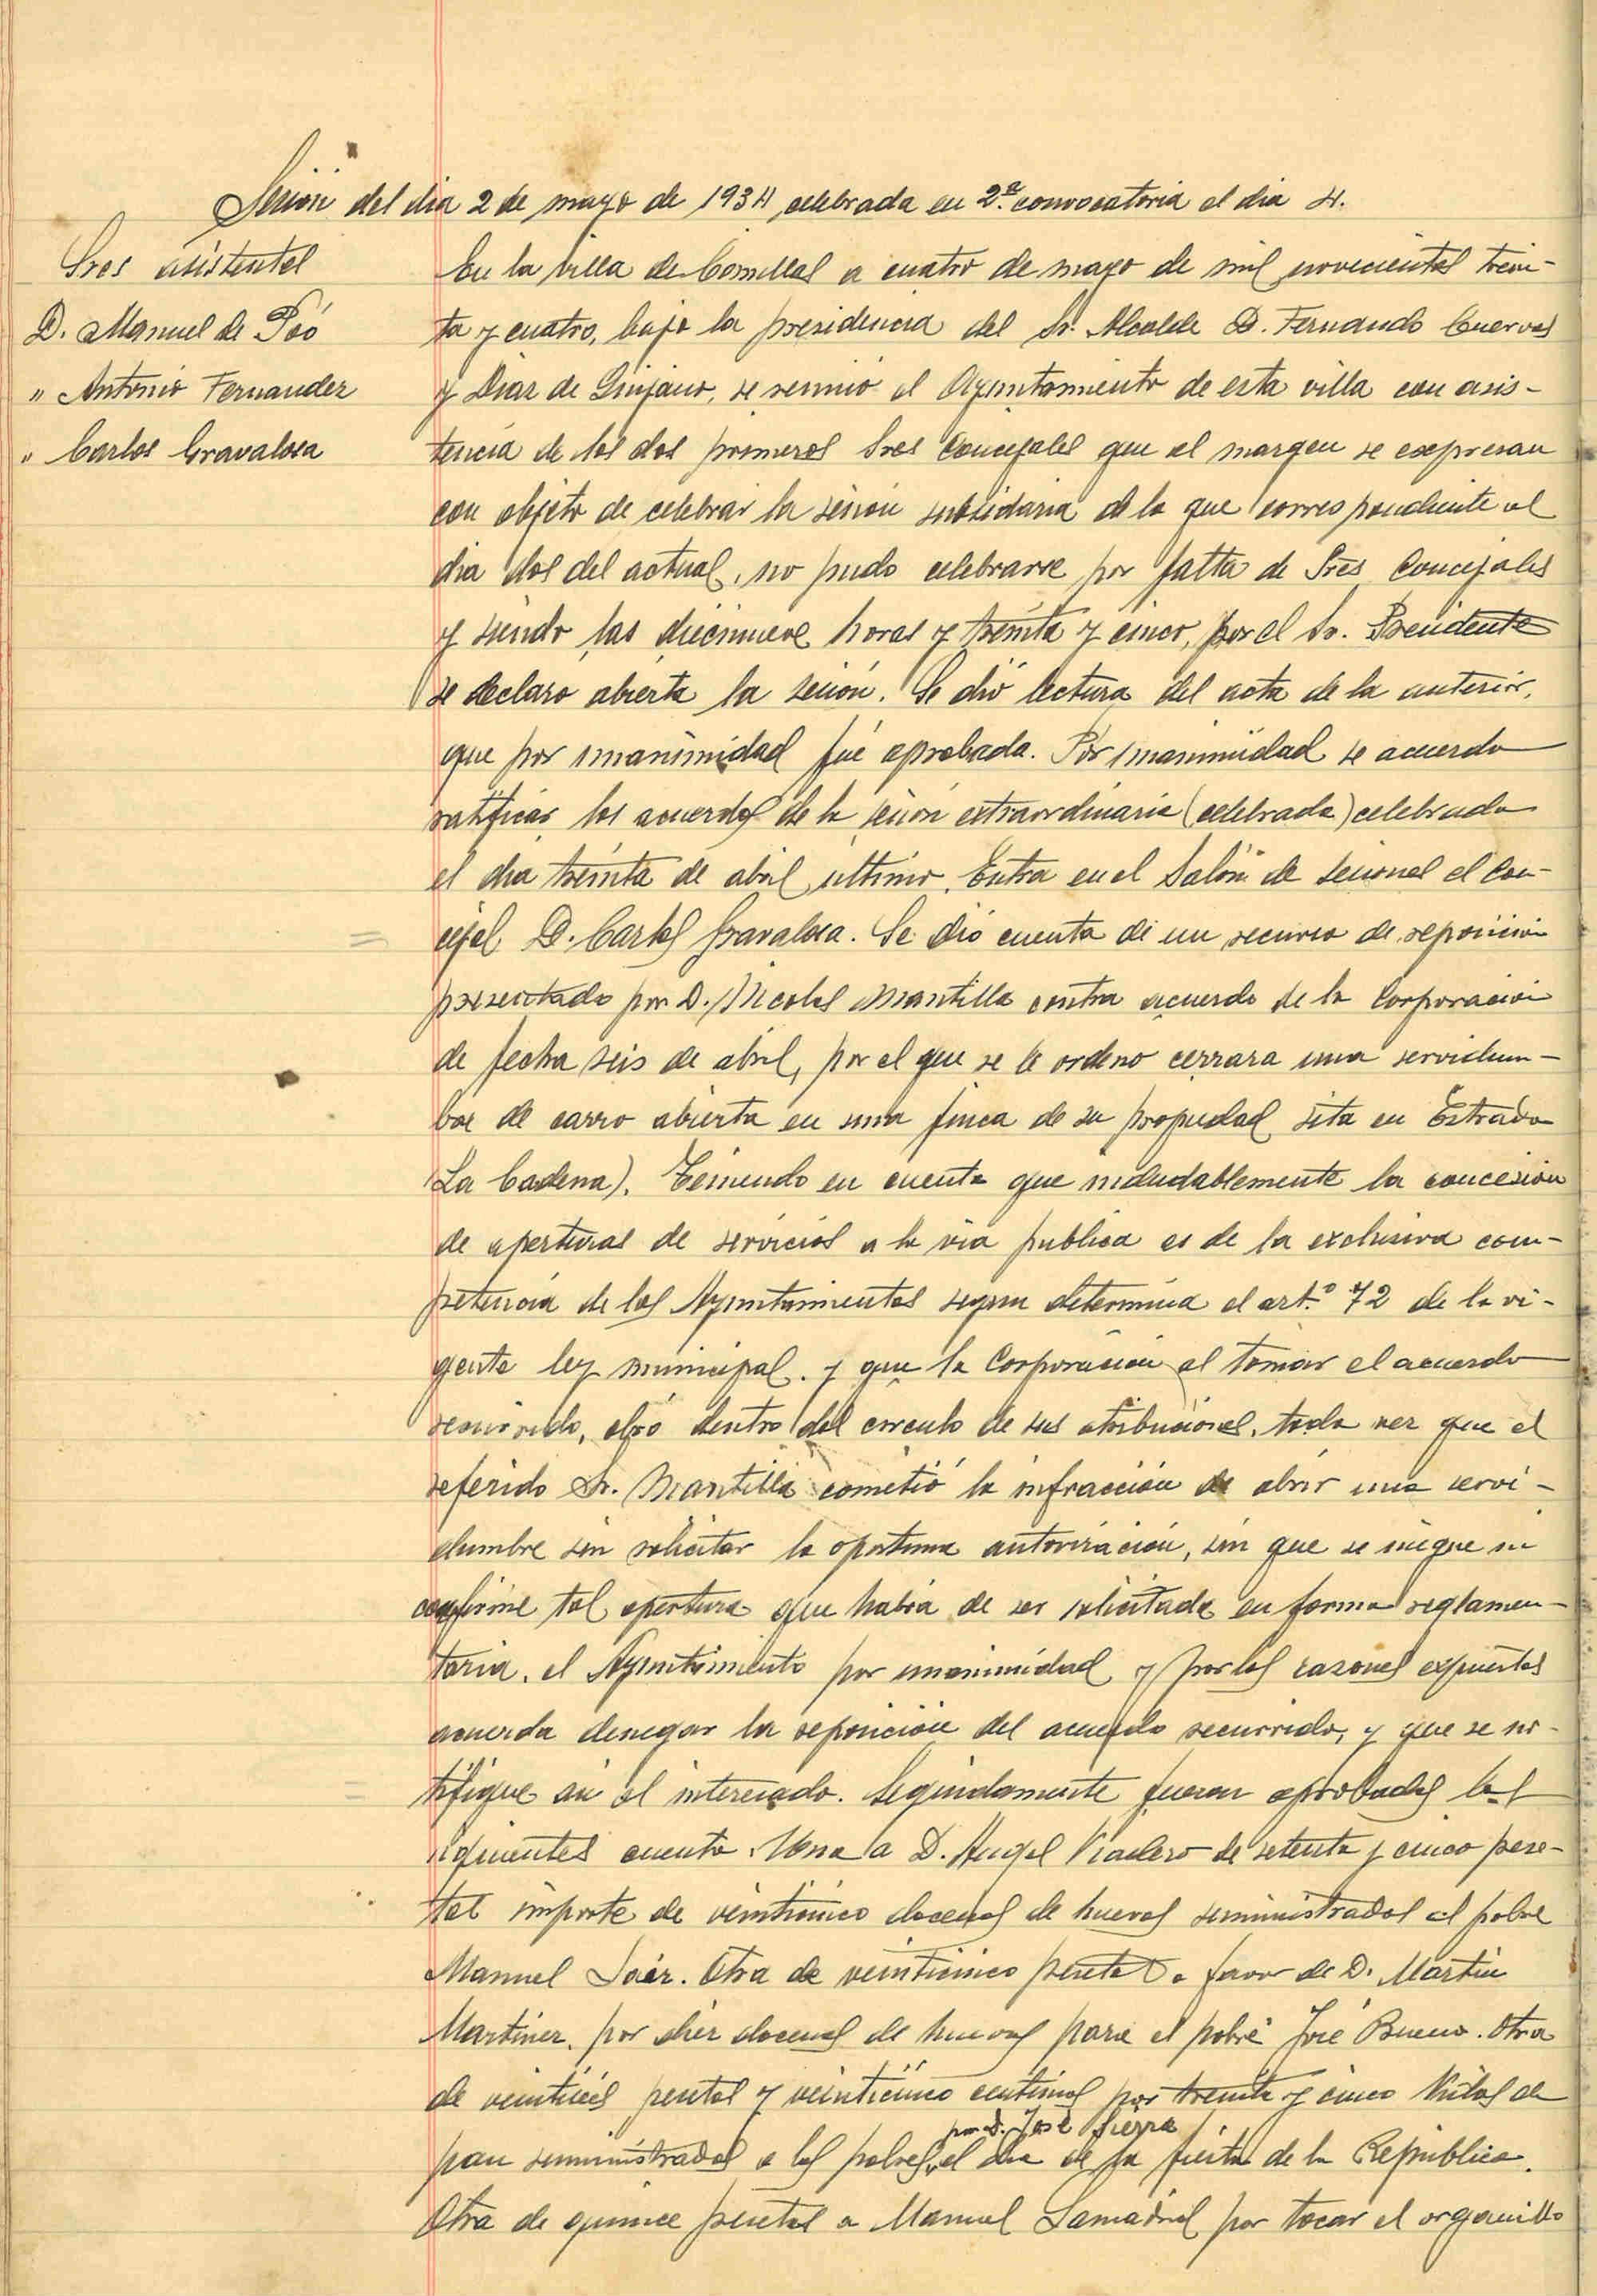 Sesión del dia 2 de mayo de 1934, celebrada en 2ª convocatoria el dia 4.
Sres asistentes
D. Manuel de Poó
" Antonio Fernandez
" Carlos Gravalosa
En la villa de Comillas a cuatro de mayo de mil novecientos trein-
ta y cuatro, bajo la presidencia del Sr. Alcalde D. Fernando Cuervas
y Diaz de Quijano, se reunió el Ayuntamiento de esta villa con asis-
tencia de los dos primeros Sres Concejales que al margen se expresan
con objeto de celebrar la sesión subsidiaria de la que correspondiente al
dia dos del actual, no pudo celebrarse por falta de Sres Concejales
y siendo las diecinueve horas y treinta y cinco, por el Sr. Presidente
se declaro abierta la sesión. Se dió lectura del acta de la anterior,
que por unanimidad fué aprobada. Por unanimidad se acuerda
ratificar los acuerdos de la sesión extraordinaria (celebrada) celebrada
el dia treinta de abril último. Entra en el Salón de sesiones el con-
cejal D. Carlos Gravalosa. Se dió cuenta de un recurso de reposición
presentado por D. Nicolas Mantilla contra acuerdo de la Corporación
de fecha seis de abril, por el que se le ordeno cerrara una servidum-
bre de carro abierta en una finca de su propiedad sita en Estrada
(La Cadena). Teniendo en cuenta que indudablemente la concesión
de aperturas de servicios a la via publica es de la exclusiva com-
petencia de los Ayuntamientos segun determina el art.º 72 de la vi-
gente ley municipal. y que la Corporación al tomar el acuerdo
recurrido, obró dentro del circulo de sus atribuciones, toda vez que el
referido Sr. Mantilla cometió la infracción de abrir una servi-
dumbre sin solicitar la oportuna autorización, sin que se niegue ni
confirme tal apertura que habia de ser solicitada en forma reglamen-
taria, el Ayuntamiento por unanimidad y por las razones expuestas
acuerda denegar la reposición del acuerdo recurrido, y que se no-
tifique asi al interesado. Seguidamente fueron aprobadas las
siguientes cuentas. Una a D. Angel Viadero de setenta y cinco pese-
tas importe de veinticinco docenas de huevos suministrados al pobre
Manuel Saiz. Otra de veinticinco pesetas a favor de D. Martin
Martinez, por diez docenas de huevos para el pobre José Bueno. Otra
de veintiseis pesetas y veinticinco centimos por treinta y cinco kilos de
por D. José Sierra
pan suministrados a los pobres, el dia de la fiesta de la República.
Otra de quince pesetas a Manuel Lamadrid por tocar el organillo